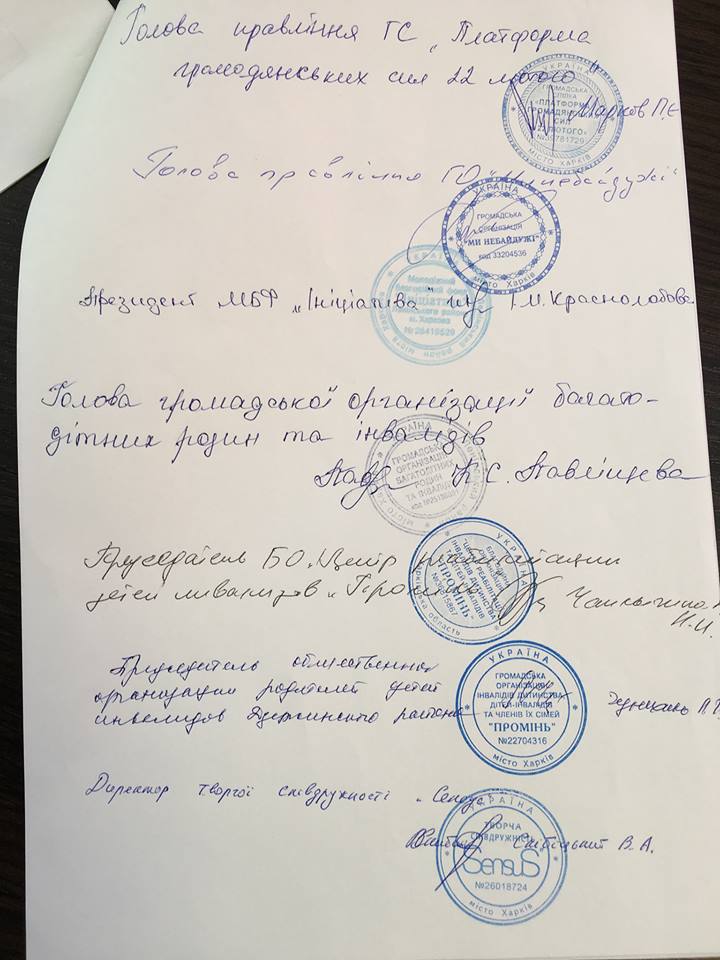 Голова правління ГС „Платформа
громадянських сил 22 лютого"
Марков П.Є
УКРАЇНА
ГРОМАДСЬКА
СПІЛКА
«ПЛАТФОРМА
ГРОМАДЯНСЬКИХ
СИЛ
22 ЛЮТОГО»
МІСТО ХАРКІВ
Голова правління ГО "Ми небайдужі"
УКРАЇНА
ГРОМАДСЬКА
ОРГАНІЗАЦІЯ
"МИ НЕБАЙДУЖІ"
код 33204536
місто Харків
Президент МБФ „Ініціатива"
І.М. Краснолобова
Молодіжний
благодійний фонд
м. Харкова
№ 26419529
Голова громадської організації багато-
дітних родин та інвалідів
К. С. Павліщева
УКРАЇНА
ГРОМАДСЬКА
ОРГАНІЗАЦІЯ
БАГАТОДІТНИХ
РОДИН
ТА ІНВАЛІДІВ
Председатель БО „Центр реабилитации
детей инвалидов „Промінь"
И.И.
УКРАЇНА
ІНВАЛІДІВ ДИТИНСТВА
ТА ДІТЕЙ-ІНВАЛІДІВ
"ПРОМІНЬ"
Харківська область
Председатель общественной
организации родителей детей
инвалидов Дзержинского района
УКРАЇНА
ГРОМАДСЬКА
ОРГАНІЗАЦІЯ
ІНВАЛІДІВ ДИТИНСТВА
ДІТЕЙ-ІНВАЛІДІВ
ТА ЧЛЕНІВ ЇХ СІМЕЙ
"ПРОМІНЬ"
№22704316
місто Харків
Директор творчої співдружності „Сенсус"
В.А.
УКРАЇНА
ТВОРЧА
СПІВДРУЖНІСТЬ
SensuS
№26018724
місто Харків